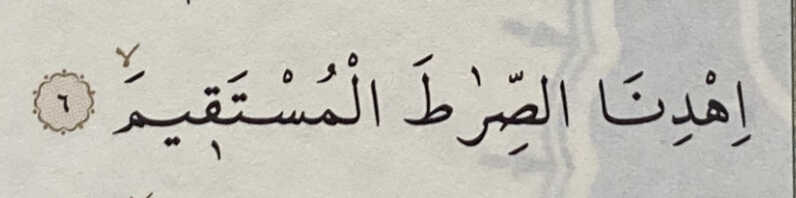 اِهْدِنَا الصِّرٰطَ الْمُسْتَقٖيمَۙ ٦